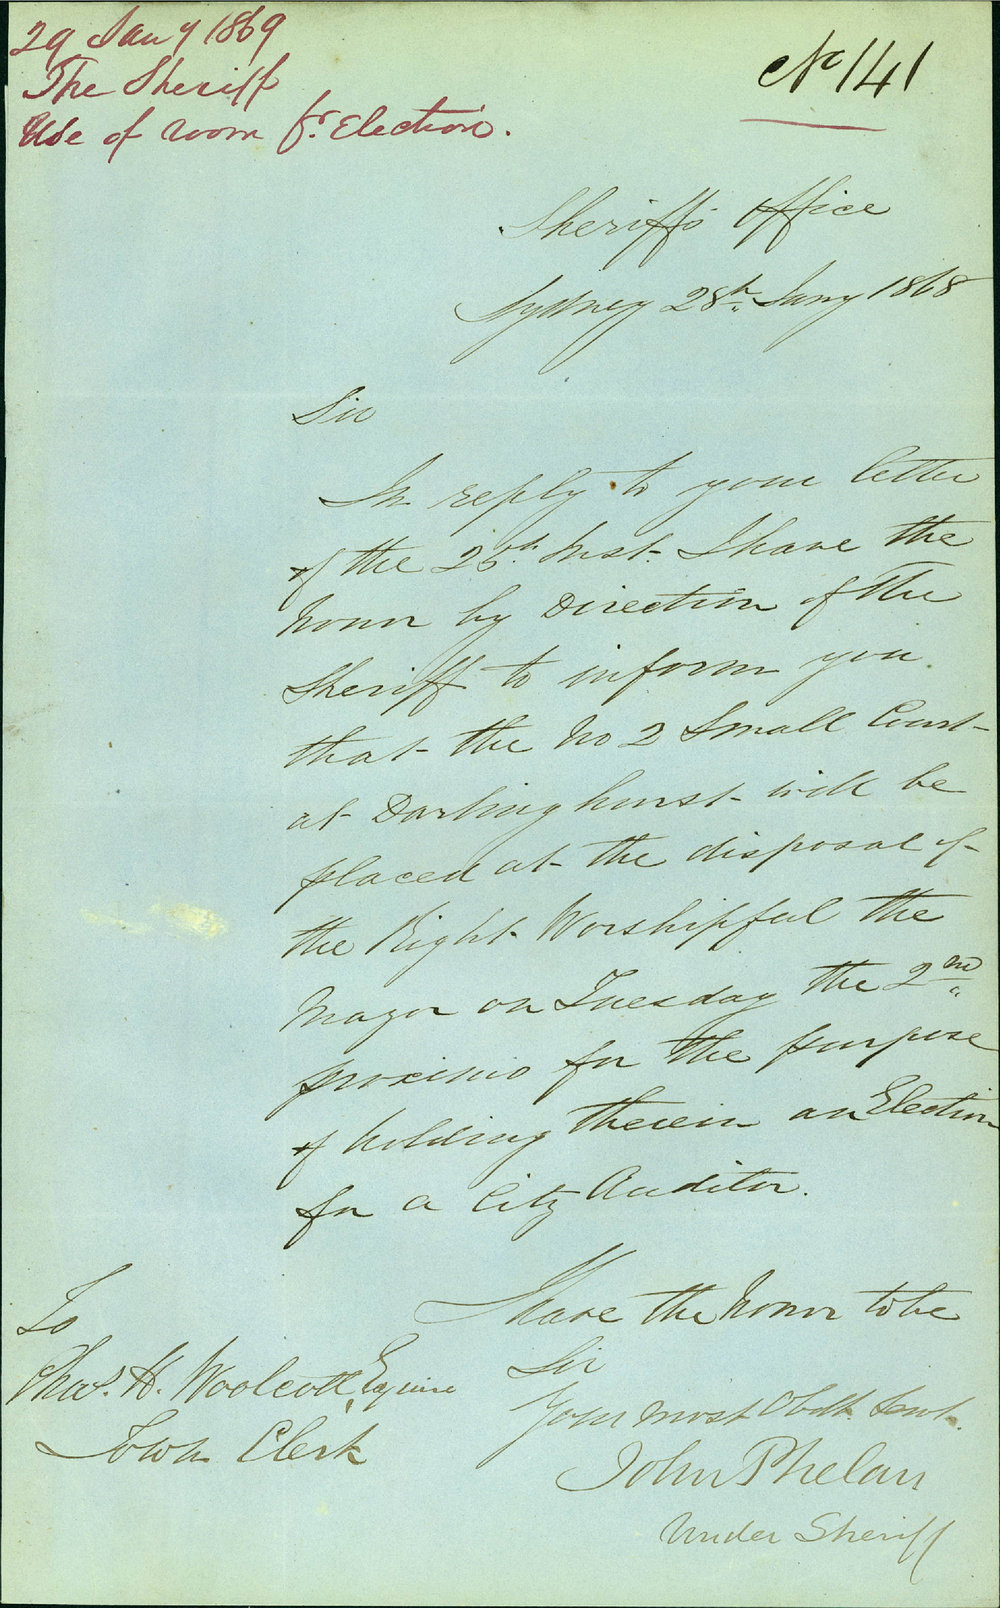 29 Jany 1869
The Sheriff
Use of room fr. Election.
No 141
Sheriff's Office
Sydney 28th. Jany 1868
Sir
In reply to your letter
of the 26th. Inst. I have the
honor by Direction of The
Sheriff to inform you
that the No 2 Small Court
at Darlinghurst will be
placed at the disposal of
the Right Worshipful the
Mayor on Tuesday the 2nd
proximo for the purpose
of holding therein an Election
for a City Auditor.
I have the honor to be
Sir
Your most Obdt. Servt.
John Phelan
Under Sheriff
To
Chas. H. Woolcott, Esquire
Town Clerk